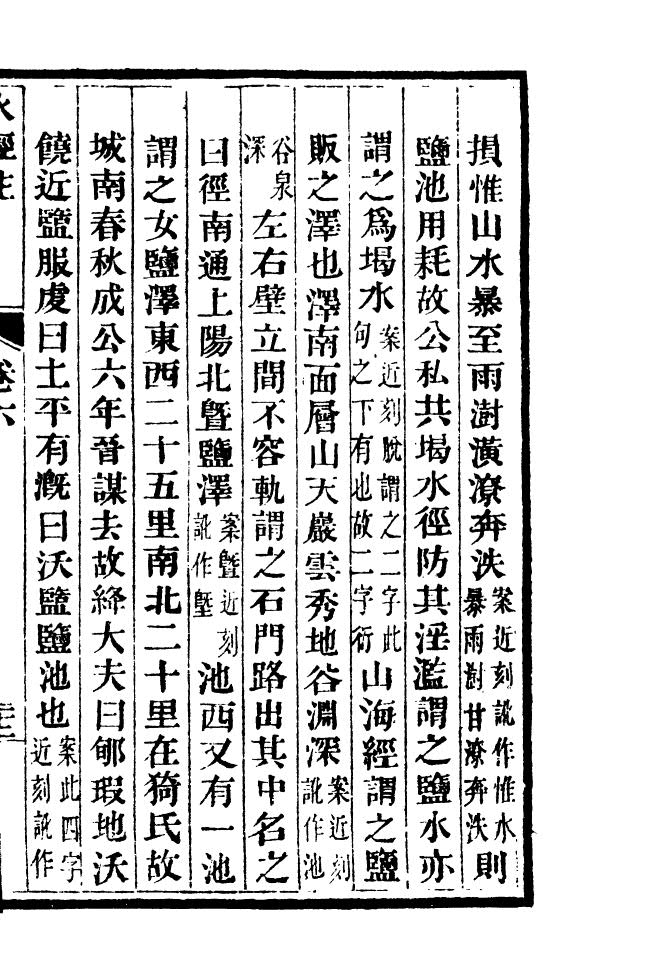 損惟山水暴至雨澍潢潦奔泆案近刻訛作惟水暴雨澍甘潦奔泆則
鹽池用耗故公私共堨水徑防其淫濫謂之鹽水亦
謂之爲堨水案近刻脫謂之二字此句之下有也故二字衍山海經謂之鹽
販之澤也澤南面層山天巖雲秀地谷淵深案近刻訛作池
谷泉深左右壁立間不容軌謂之石門路出其中名之
曰徑南通上陽北暨鹽澤案暨近刻訛作塈池西又有一池
謂之女鹽澤東西二十五里南北二十里在猗氏故
城南春秋成公六年晉謀去故絳大夫曰郇瑕地沃
饒近鹽服虔曰土平有漑曰沃鹽鹽池也案此四字近刻訛作
水經注 卷六